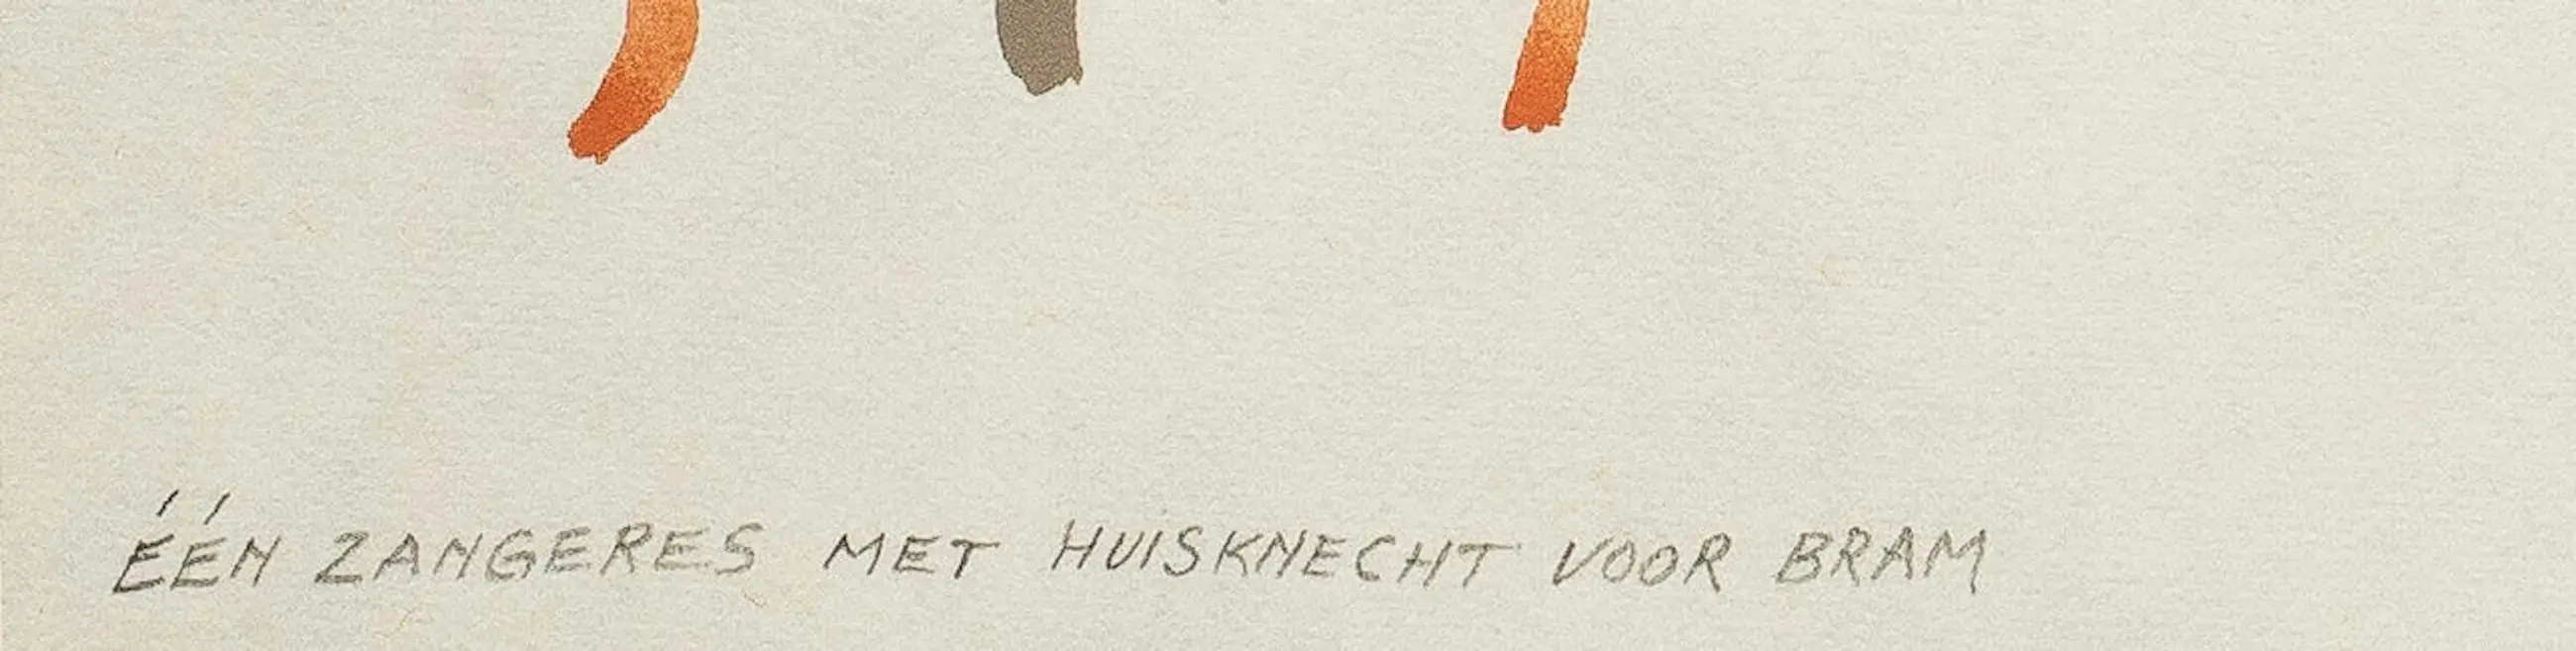 ÉÉN ZANGERES MET HUISKNECHT VOOR BRAM